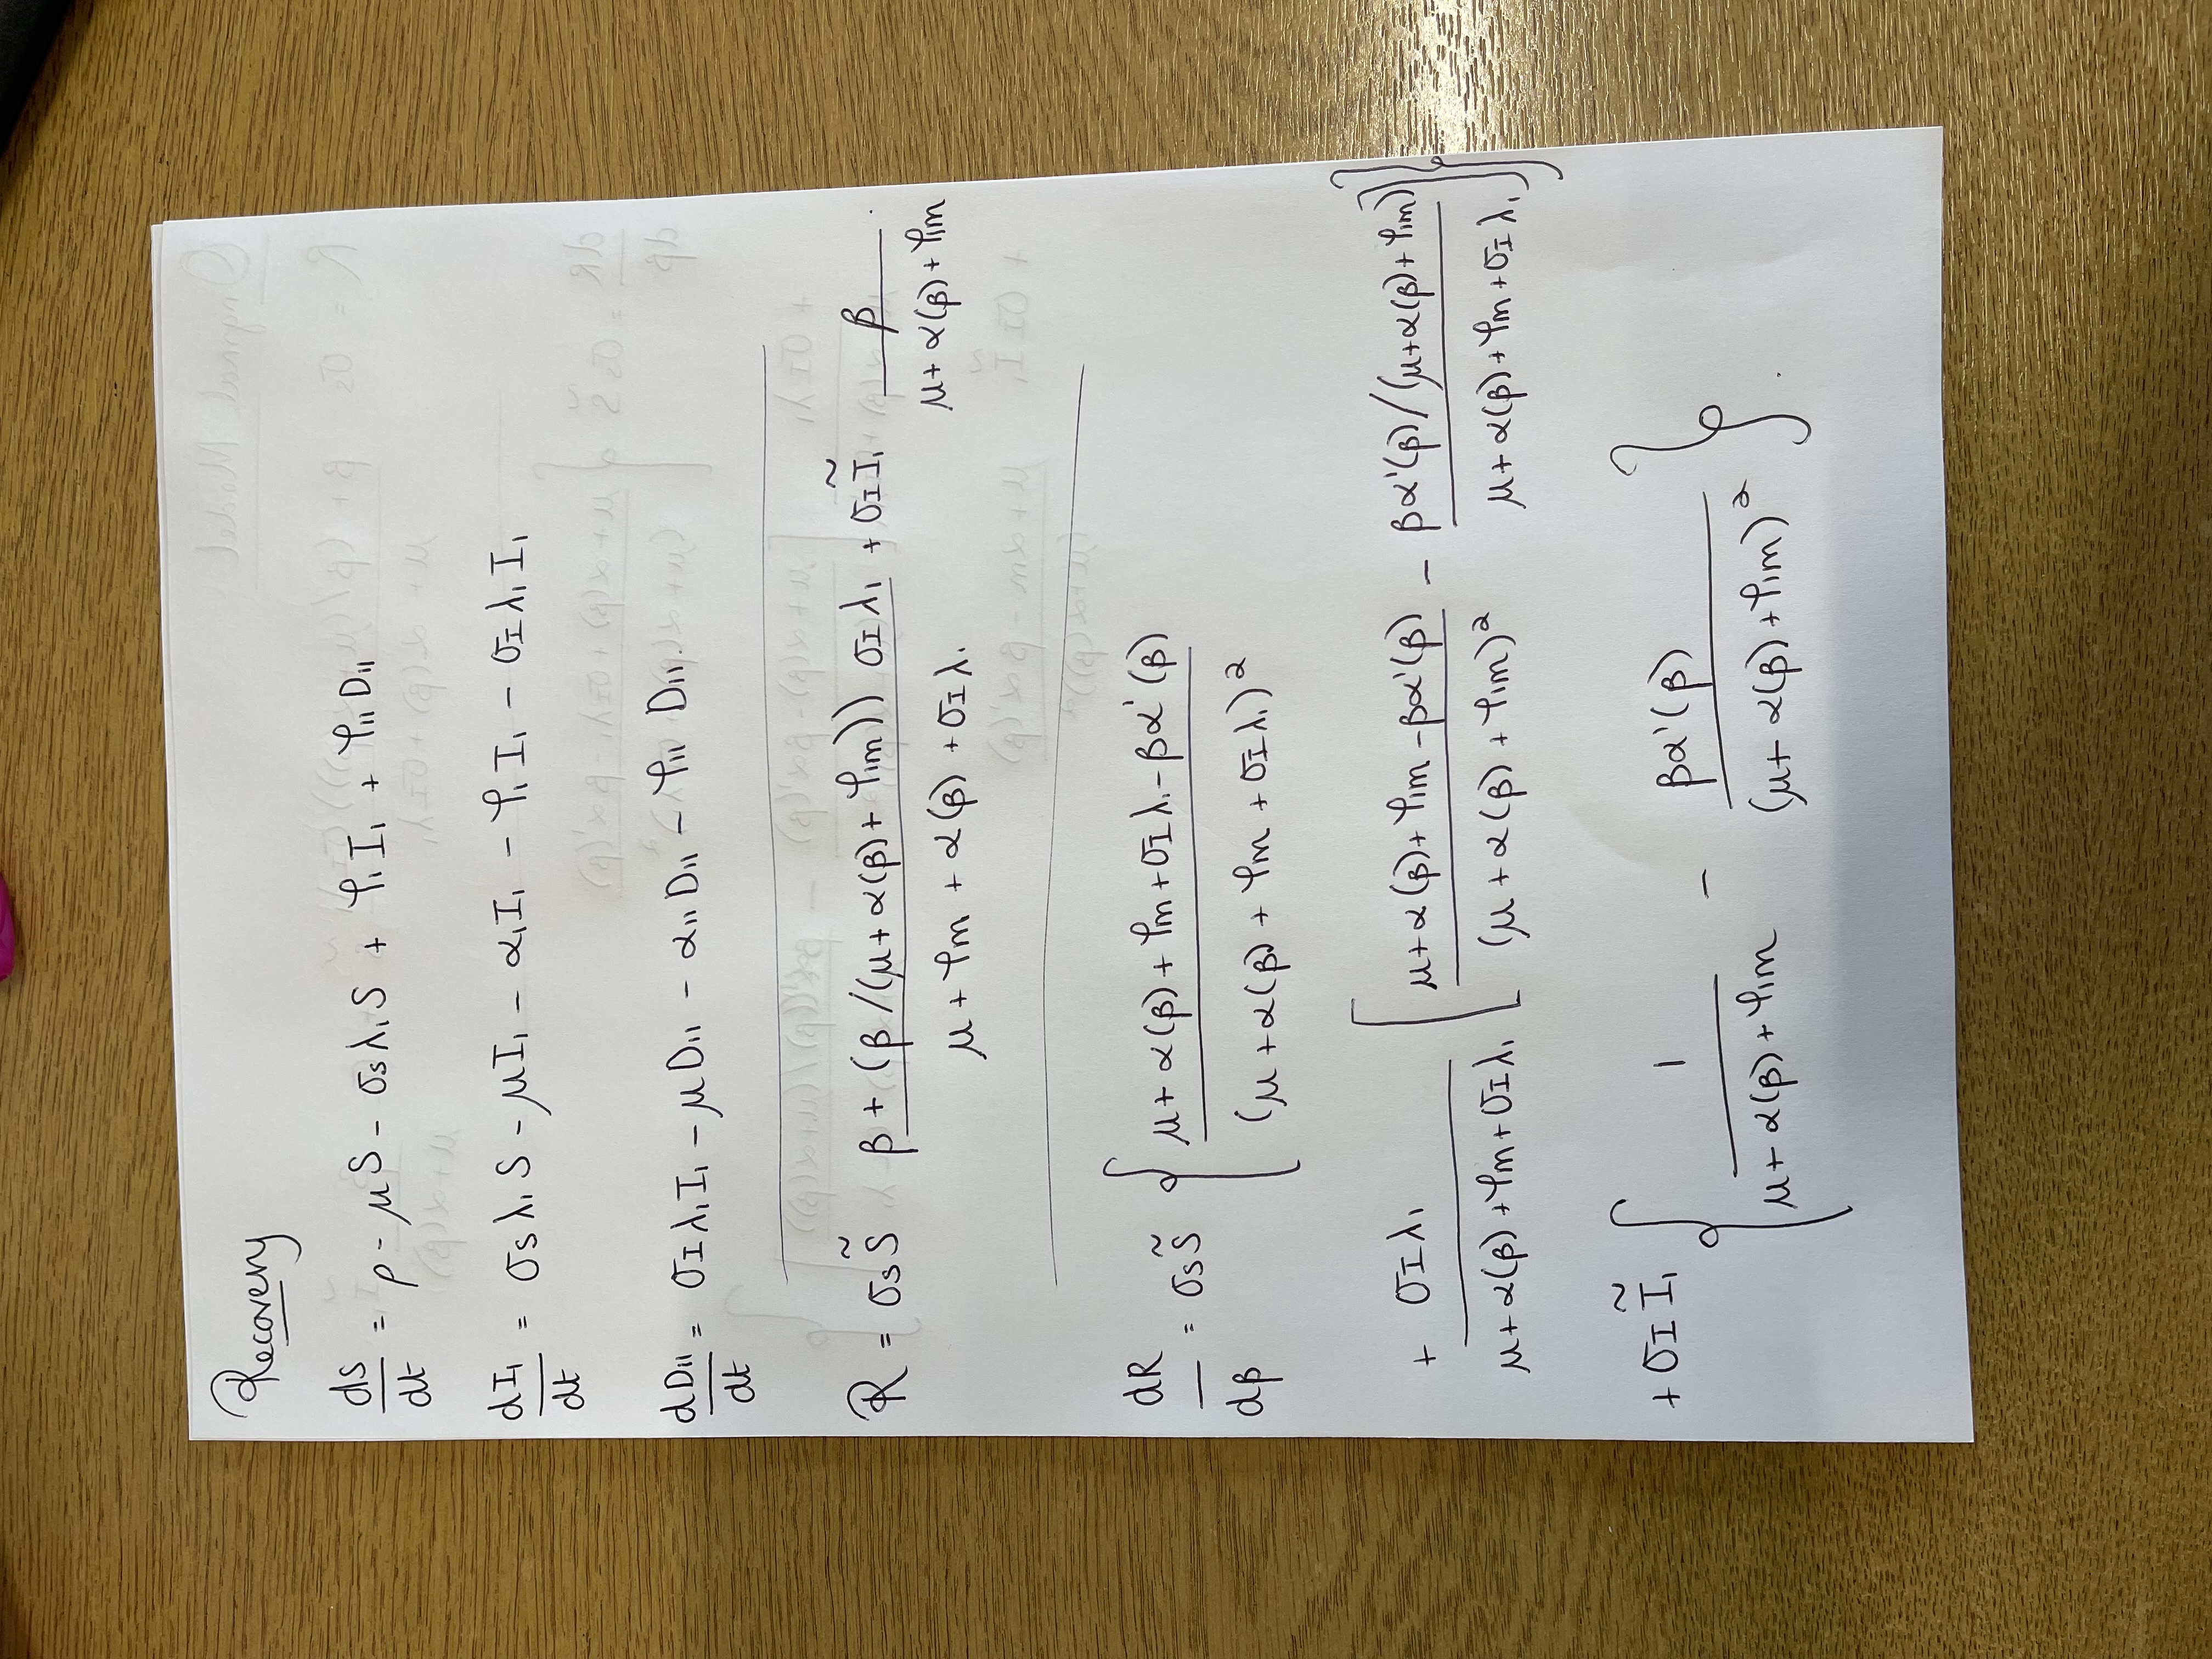 Recovery
dS/dt = ρ - μS - σ_S λ₁ S + φ₁ I₁ + φ₁₁ D₁₁
dI₁/dt = σ_S λ₁ S - μI₁ - α₁I₁ - φ₁ I₁ - σ_I λ₁ I₁
dD₁₁/dt = σ_I λ₁ I₁ - μD₁₁ - α₁₁ D₁₁ - φ₁₁ D₁₁.
R = σ_S S̃ (β + (β/(μ+α(β)+φ₁m)) σ_I λ₁)/(μ + φm + α(β) + σ_I λ₁) + σ_I Ĩ₁ β/(μ+α(β)+φ₁m).
dR/dβ = σ_S S̃ { (μ+α(β)+φm+σ_I λ₁-βα'(β))/(μ+α(β)+φm+σ_I λ₁)²
+ σ_I λ₁/(μ+α(β)+φm+σ_I λ₁) [ (μ+α(β)+φ₁m-βα'(β))/(μ+α(β)+φ₁m)² - (βα'(β)/(μ+α(β)+φ₁m))/(μ+α(β)+φm+σ_I λ₁) ] }
+ σ_I Ĩ₁ { 1/(μ+α(β)+φ₁m) - βα'(β)/(μ+α(β)+φ₁m)² }.